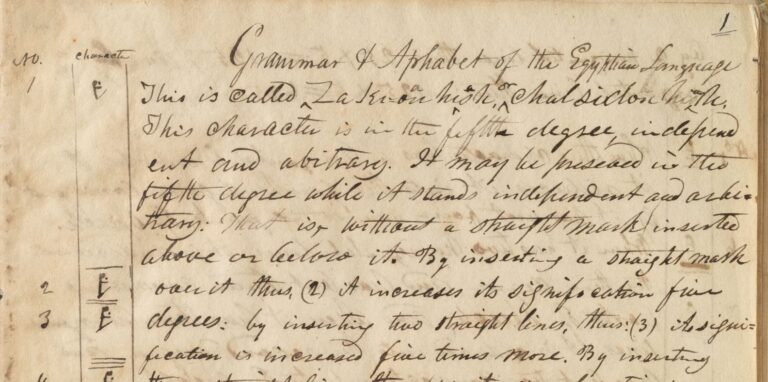 1
No. character Grammar & Aphabet of the Egyptian Language
1 This is called Za Ki-oan hiash, or chalsidon hiash.
This character is in the fifth degree, independ
ent and abitrary. It may be preseved in the
fifth degree while it stands independent and arbi-
trary: That is, without a straight mark inserted
above or below it. By inserting a straight mark
2 over it thus, (2) it increases its signification five
3 degrees: by inserting two straight lines, thus: (3) its signi-
fication is increased five times more. By inserting